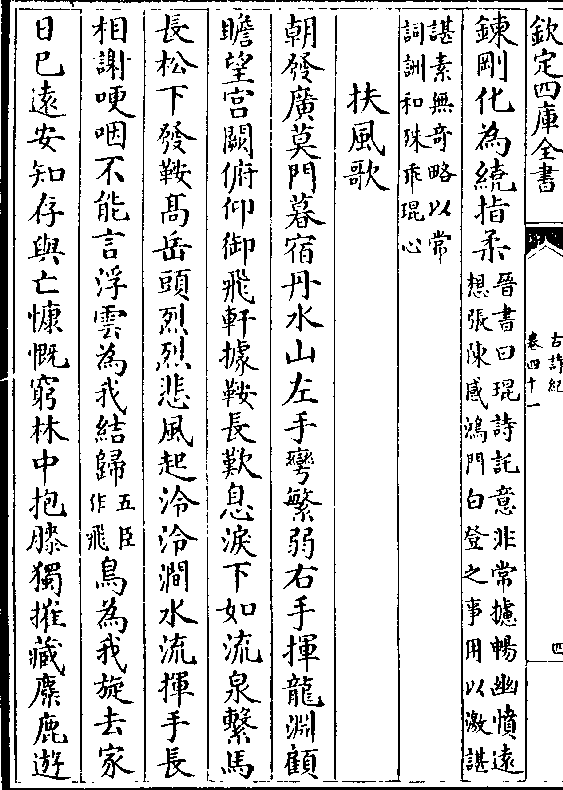 欽定四庫全書
古詩紀
卷四十一
四
鍊剛化為繞指柔
晉書曰琨詩託意非常攄暢幽憤遠
想張陳感鴻門白登之事用以激諶
諶素無奇略以常
詞詶和殊乖琨心
扶風歌
朝發廣莫門暮宿丹水山左手彎繁弱右手揮龍淵顧
瞻望宫闕俯仰御飛軒據鞍長歎息淚下如流泉繫馬
長松下發鞍髙岳頭烈烈悲風起泠泠澗水流揮手長
相謝哽咽不能言浮雲為我結歸五臣作飛鳥為我旋去家
日已遠安知存與亡慷慨窮林中抱膝獨摧藏麋鹿遊